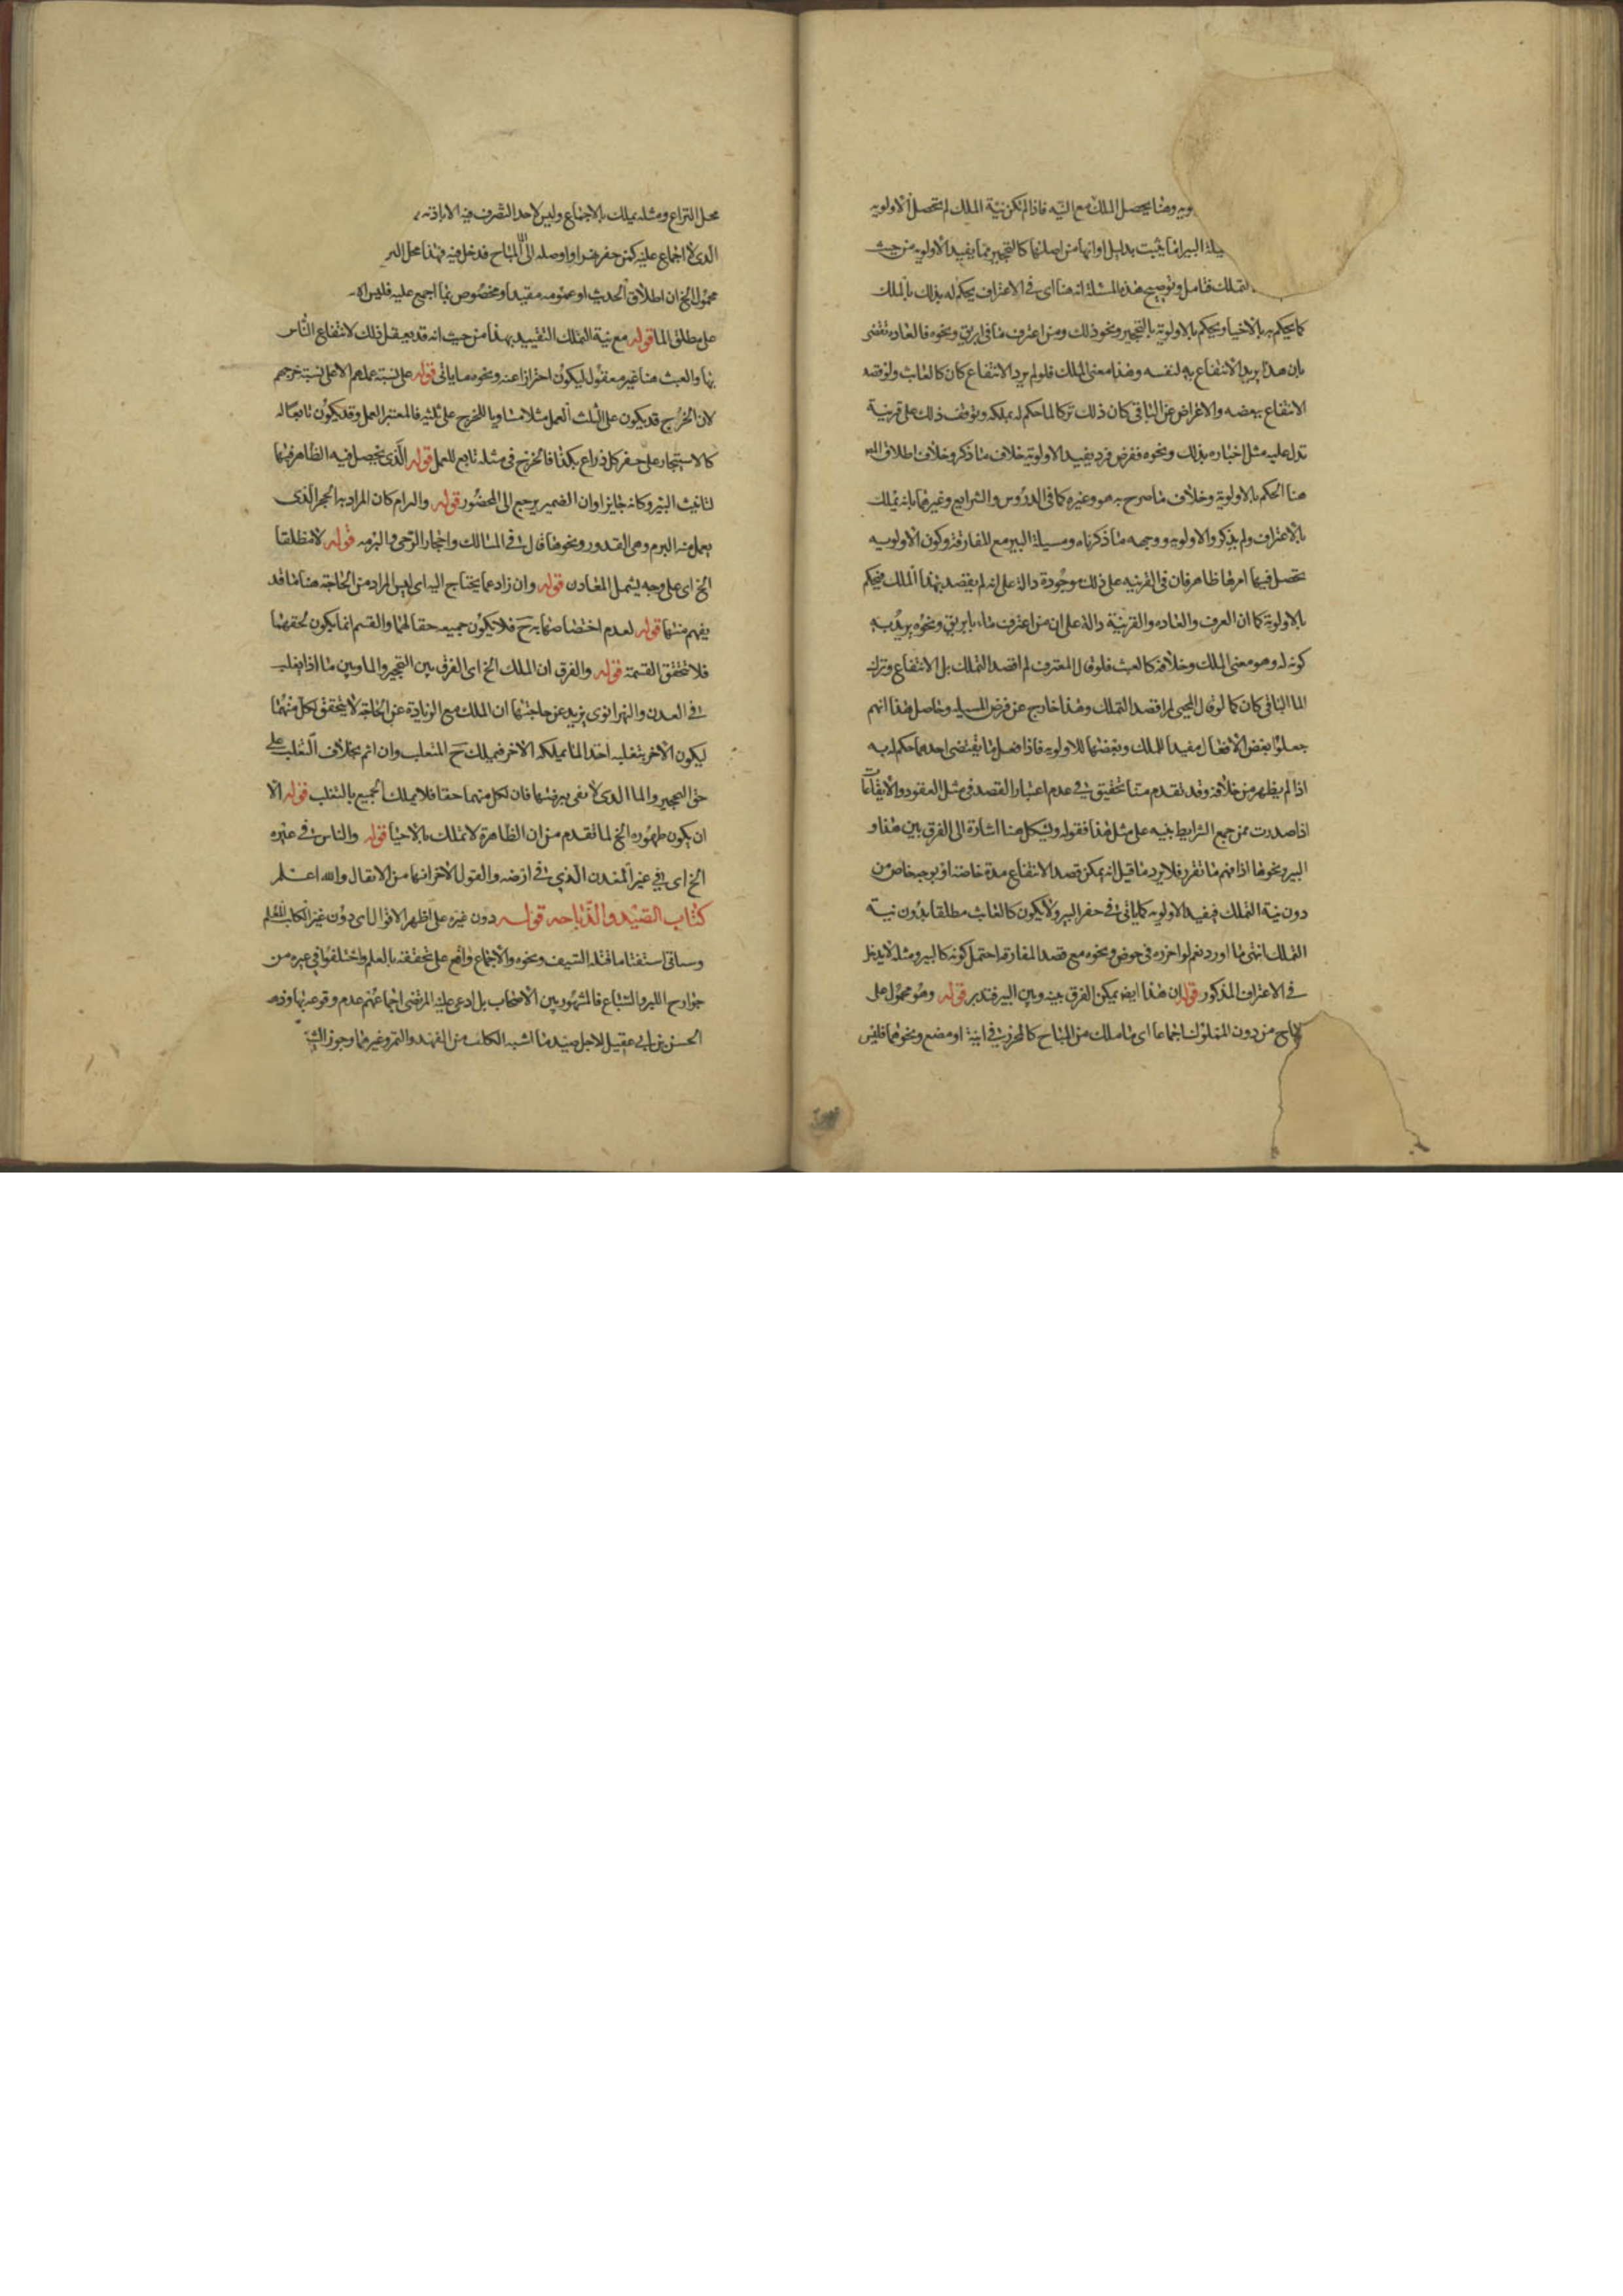 ويه وهنا يحصل الملك مع النيه فاذا لم تكن نية الملك لم تحصل الاولويه
البير انما يثبت بدليل اوانها من اصلها كالتحجير مما يفيد الاولويه من حيث
التملك فتامل وتوضيح هذه المسئلة انه هنا اى فى الاعتراف يحكم له بذلك بالملك
كما يحكم به بالاحيا ويحكم بالاولوية بالتحجير ونحو ذلك ومن اعترف ما فى ابريق ونحوه فالعاده تقتضى
بان هذا يريد الانتفاع به لنفسه وهذا معنى الملك فلو لم يرد الانتفاع كان كالعابث ولو قصد
الانتفاع ببعضه والاعراض عن الباقى كان ذلك تركا لما حكم له بملكه ويتوقف ذلك على قرينة
تدل عليه مثل اخباره بذلك ونحوه ففرض فرد يفيد الاولوية خلاف ما ذكر وخلاف اطلاق
هنا الحكم بالاولوية وخلاف ما صرح به هو وغيره كما فى الدروس والشرايع وغيرهما بانه يملك
بالاعتراف ولم يذكر والاولويه ووجهه ما ذكرناه ومسيلة البير مع المفارقة وكون الاولويه
تحصل فيها امرها ظاهر فان فى القرينه على ذلك موجودة دالة على انه لم يقصد بهذا الملك فيحكم
بالاولوية كما ان العرف والعاده والقرينة دالة على ان من اعترف ماء بابريق ونحوه يريد به
كونه له وهو معنى الملك وخلافه كالعبث فلو قال المعترف لم اقصد التملك بل الانتفاع وترك
الما الباقى كان كما لو قال المحيى لم اقصد التملك وهذا خارج عن فرض المسيله وحاصل هذا انهم
جعلوا بعض الافعال مفيدا للملك وبعضها للاولويه فاذا فعل ما يقتضى احدهما حكم له به
اذا لم يظهر من خلافه وقد تقدم منا تحقيق فى عدم اعتبار القصد فى مثل العقود والايقاعات
اذا صدرت ممن جمع الشرايط بنيه على مثل هذا فقوله ويشكل هنا اشارة الى الفرق بين هذا و
البير ونحوها اذا فهم ما تقرر فلا يرد ما قيل انه يمكن قصد الانتفاع مدة خاصة او بوجه خاص من
دون نية التملك فيفيد الاولويه كما ياتى فى حفر البير ولا يكون كالعابث مطلقا بدون نية
التملك انتهى ما اورد نعم لو احرزه فى حوض ونحوه مع قصد المفارقه احتمل كونه كالبير ومثله لا يدخل
فى الاعتراف المذكور قوله ان هذا ايضا يمكن الفرق بينه وبين البير فتدبر قوله وهو محمول على
المباح من دون المملوك اجماعا اى ما ملك من المباح كالمحرز فى انية او مصنع ونحوهما فليس
محل النزاع ومثله يملك بالاجماع وليس لاحد التصرف فيه الا باذنه
الذى لا اجماع عليه كمن حفر نهرا واوصله الى المباح فدخل فيه فهذا محل
محمول الخ ان اطلاق الحديث او عمومه مقيد او مخصوص بما اجمع عليه فليس
على مطلق الما قوله مع نية التملك التقييد بهذا من حيث انه قد يفعل ذلك لانتفاع الناس
بها والعبث هنا غير معقول ليكون احترازا عنه ونحوه ما ياتى قوله على نسبة عملهم لا على نسبة خرجهم
لان الخرج قد يكون على الثلث العمل مثلا مساويا للخرج على ثلثيه فالمعتبر العمل وقد يكون تابعا له
كالاستيجار على حفر كل ذراع بكذا فالخرج فى مثله تابع للعمل قوله الذى يحصل فيه الظاهر فيها
لتانيث البير وكانه جايز او ان الضمير يرجع الى المحفور قوله والبرام كان المراد به الحجر الذى
يعمل منه البرم وهى القدور ونحوها قال فى المسالك واحجار الرحى والبرمه قوله لا مطلقا
الخ اى على وجه يشمل المعادن قوله وان زاد عما يحتاج اليه اى ليس المراد من الحاجة هنا ما قد
يفهم منها قوله لعدم اختصاصها به ح فلا يكون جميعه حقا لهما والقسم انما يكون لحقهما
فلا تتحقق القسمة قوله والفرق ان الملك الخ اى الفرق بين التحجير والما وبين ما اذا تغلب
فى المعدن والنهر انوى يزيد عن حاجتها ان الملك مع الزيادة عن الحاجة لا يتحقق لكل منهما
ليكون الاخر بتغلبه اخذا لما يملكه الاخر فيملك ح المتغلب وان اثم بخلاف التغلب على
حق التحجير والما الذى لا يفى بغرضهما فان لكل منهما حقا فلا يملك الجميع بالتغلب قوله الا
ان يكون ظهوره الخ لما تقدم من ان الظاهرة لا تملك بالاحيا قوله والناس فى غيره
الخ اى فى غير المعدن الذى فى ارضه والقول الاخر انها من الانفال والله اعلم
كتاب الصيد والذباحه قوله دون غيره على اظهر الاقوال اى دون غير الكلب المعلم
وسياتى استثنا ما قتله السيف ونحوه والاجماع واقع على تحققه بالمعلم واختلفوا فى غيره من
جوارح الطير والسباع فالمشهور بين الاصحاب بل ادعى عليه المرتضى اجماعهم عدم وقوعه بها وذهب
الحسن بن ابى عقيل الى حل صيد ما اشبه الكلب من الفهد والنمر وغيرهما وجوز الشيخ